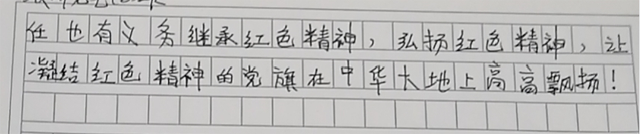 任也有义务继承红色精神，弘扬红色精神，让
凝结红色精神的党旗在中华大地上高高飘扬！